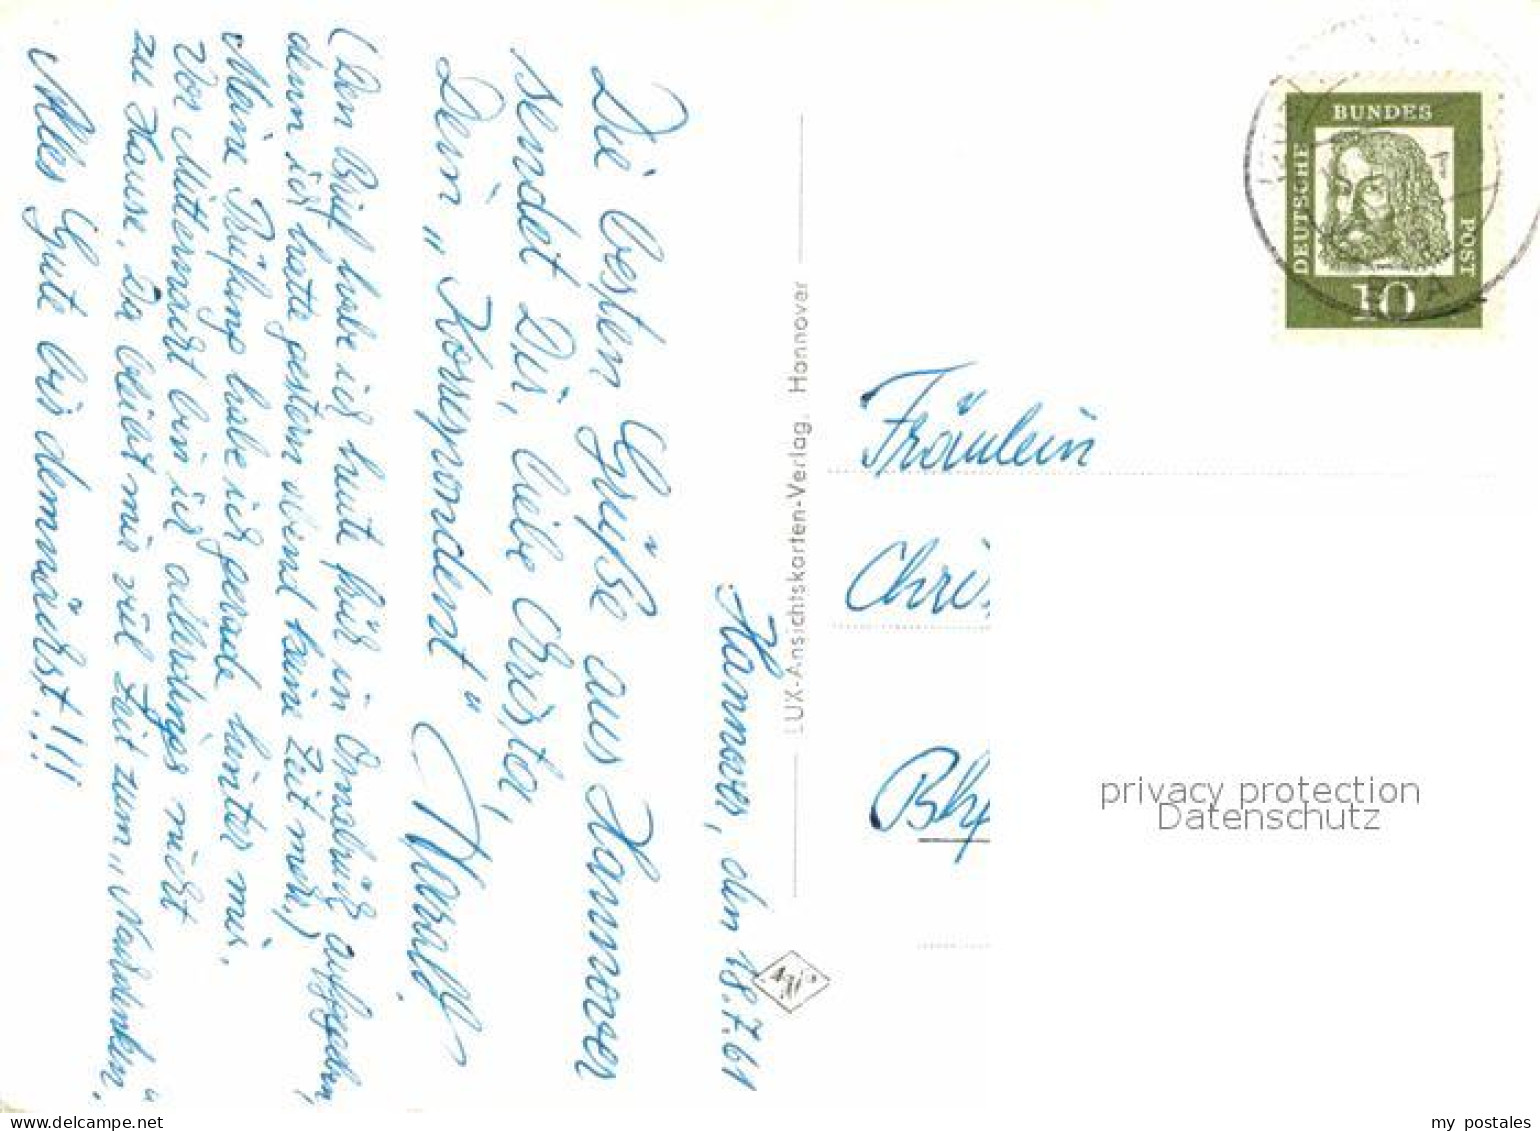 Hannover, den 18.7.61
Die besten Grüße aus Hannover
sendet Dir, liebe Christa,
Dein „Korrespondent"
Harald
(Den Brief habe ich heute früh in Osnabrück aufgegeben,
denn ich hatte gestern abend keine Zeit mehr.)
Meine Prüfung habe ich gerade hinter mir.
Vor Mitternacht bin ich allerdings nicht
zu Hause. Da bleibt mir viel Zeit zum „Nachdenken".
Alles Gute bis demnächst!!!
LUX-Ansichtskarten-Verlag, Hannover
Agfa
DEUTSCHE
BUNDES
POST
10
Fräulein
Chris
Bhf
privacy protection
Datenschutz
my postales